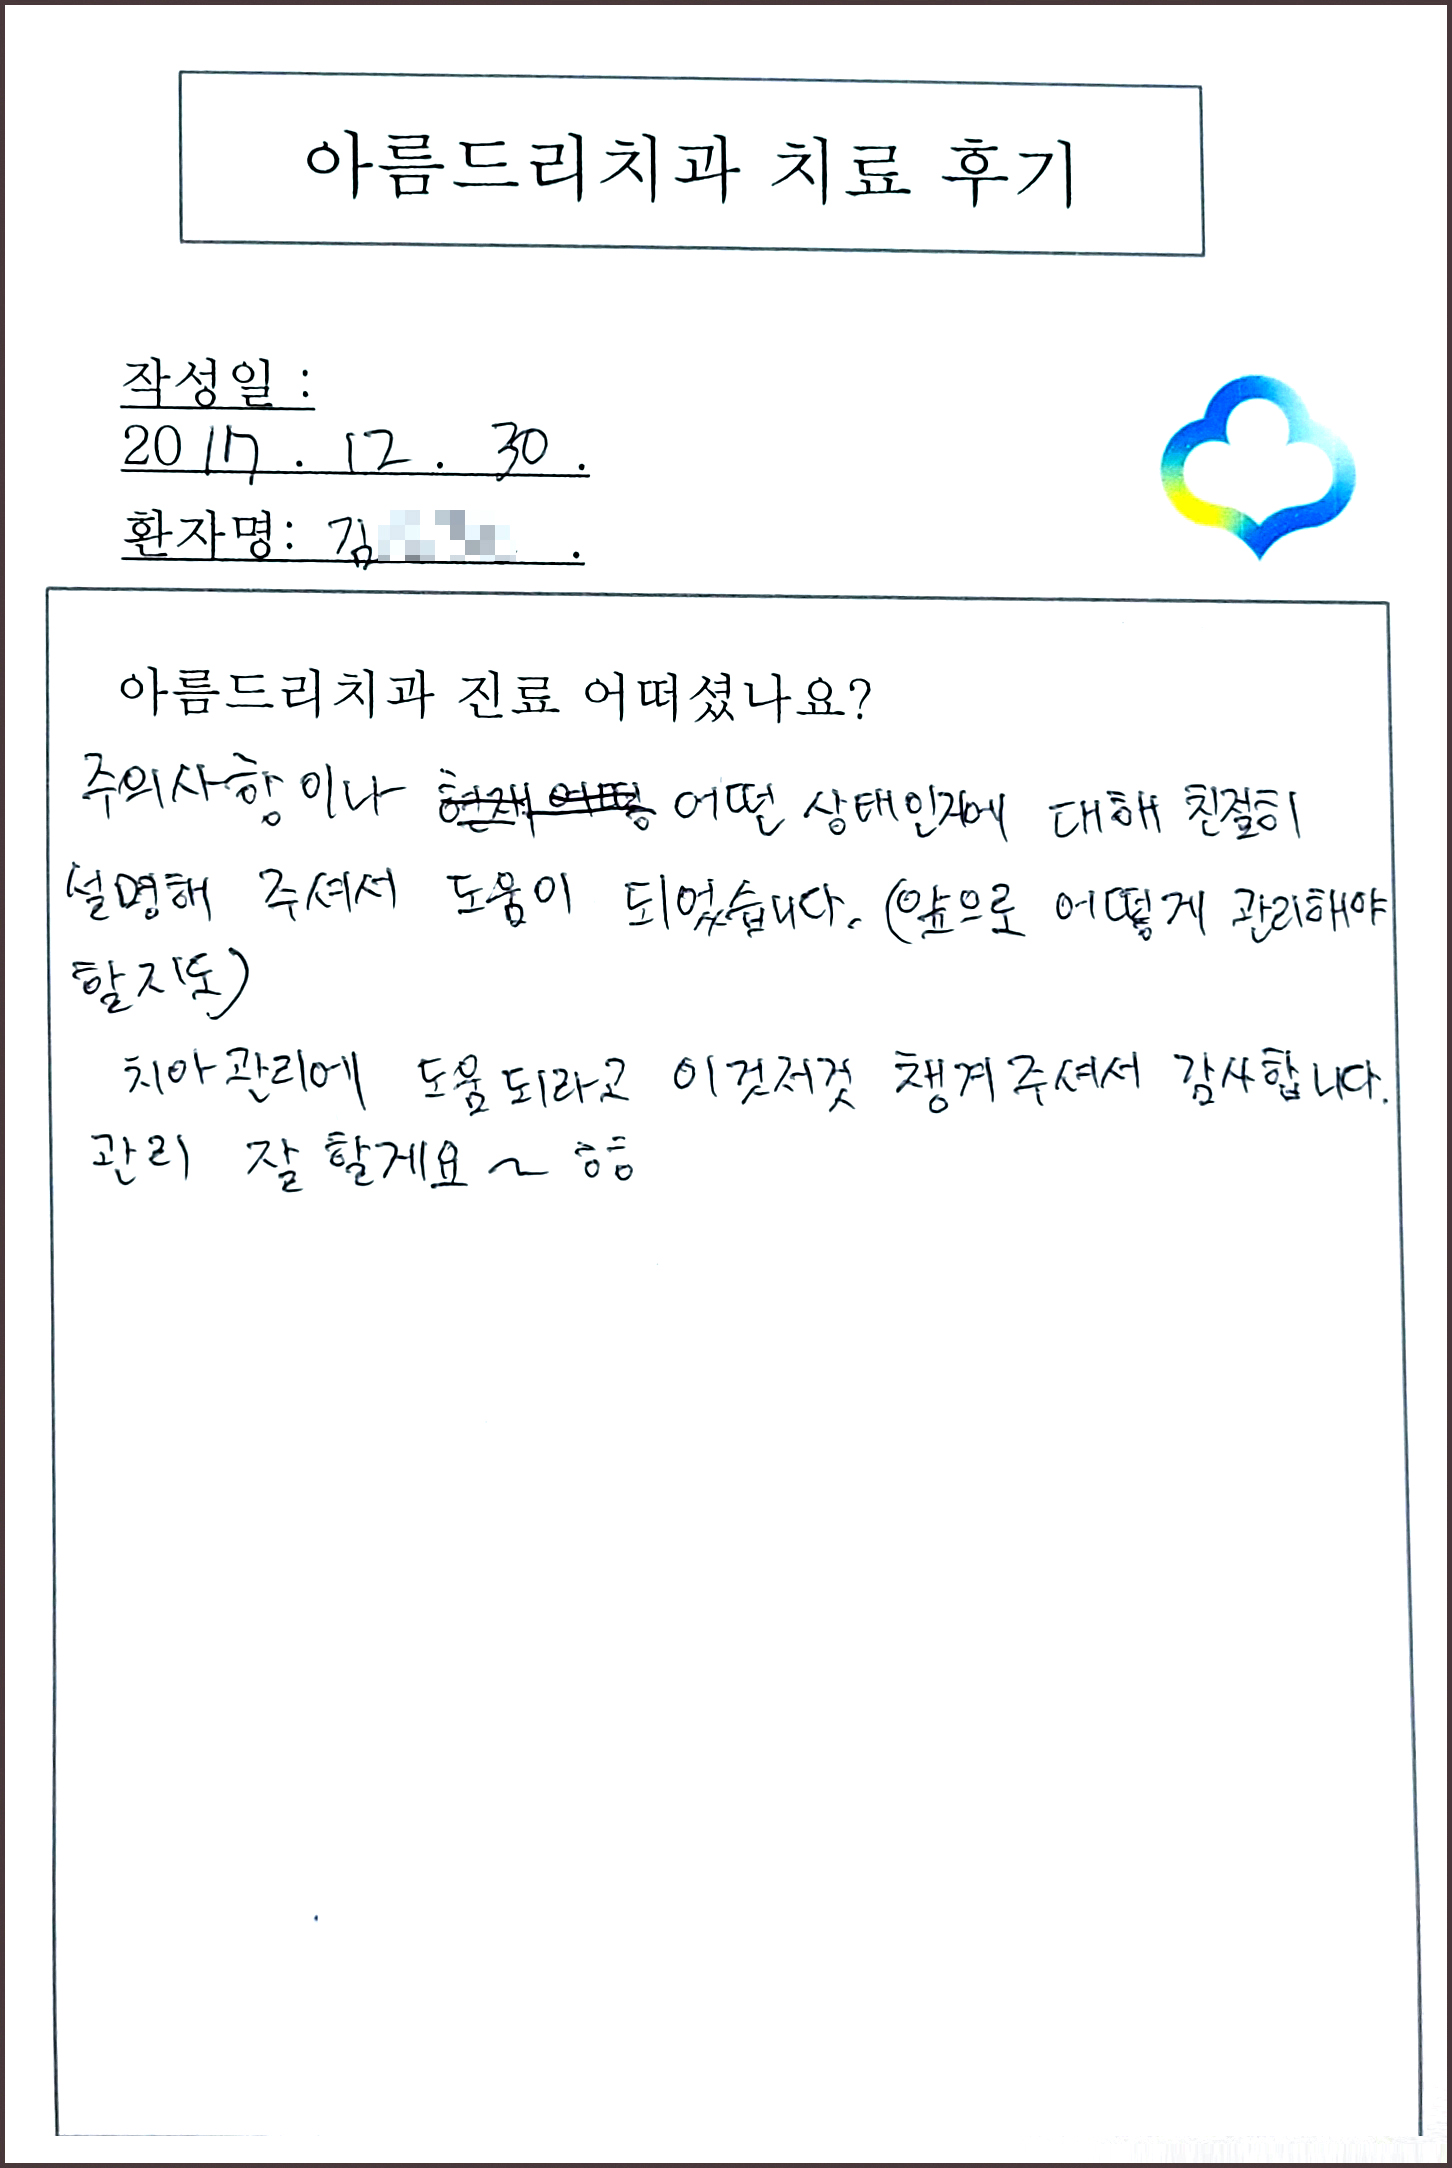 아름드리치과 치료 후기
작성일 :
2017 . 12 . 30 .
환자명: 김 .
아름드리치과 진료 어떠셨나요?
주의사항이나 어떤 상태인지에 대해 친절히
설명해 주셔서 도움이 되었습니다. (앞으로 어떻게 관리해야
할지도)
치아관리에 도움되라고 이것저것 챙겨주셔서 감사합니다.
관리 잘 할게요~